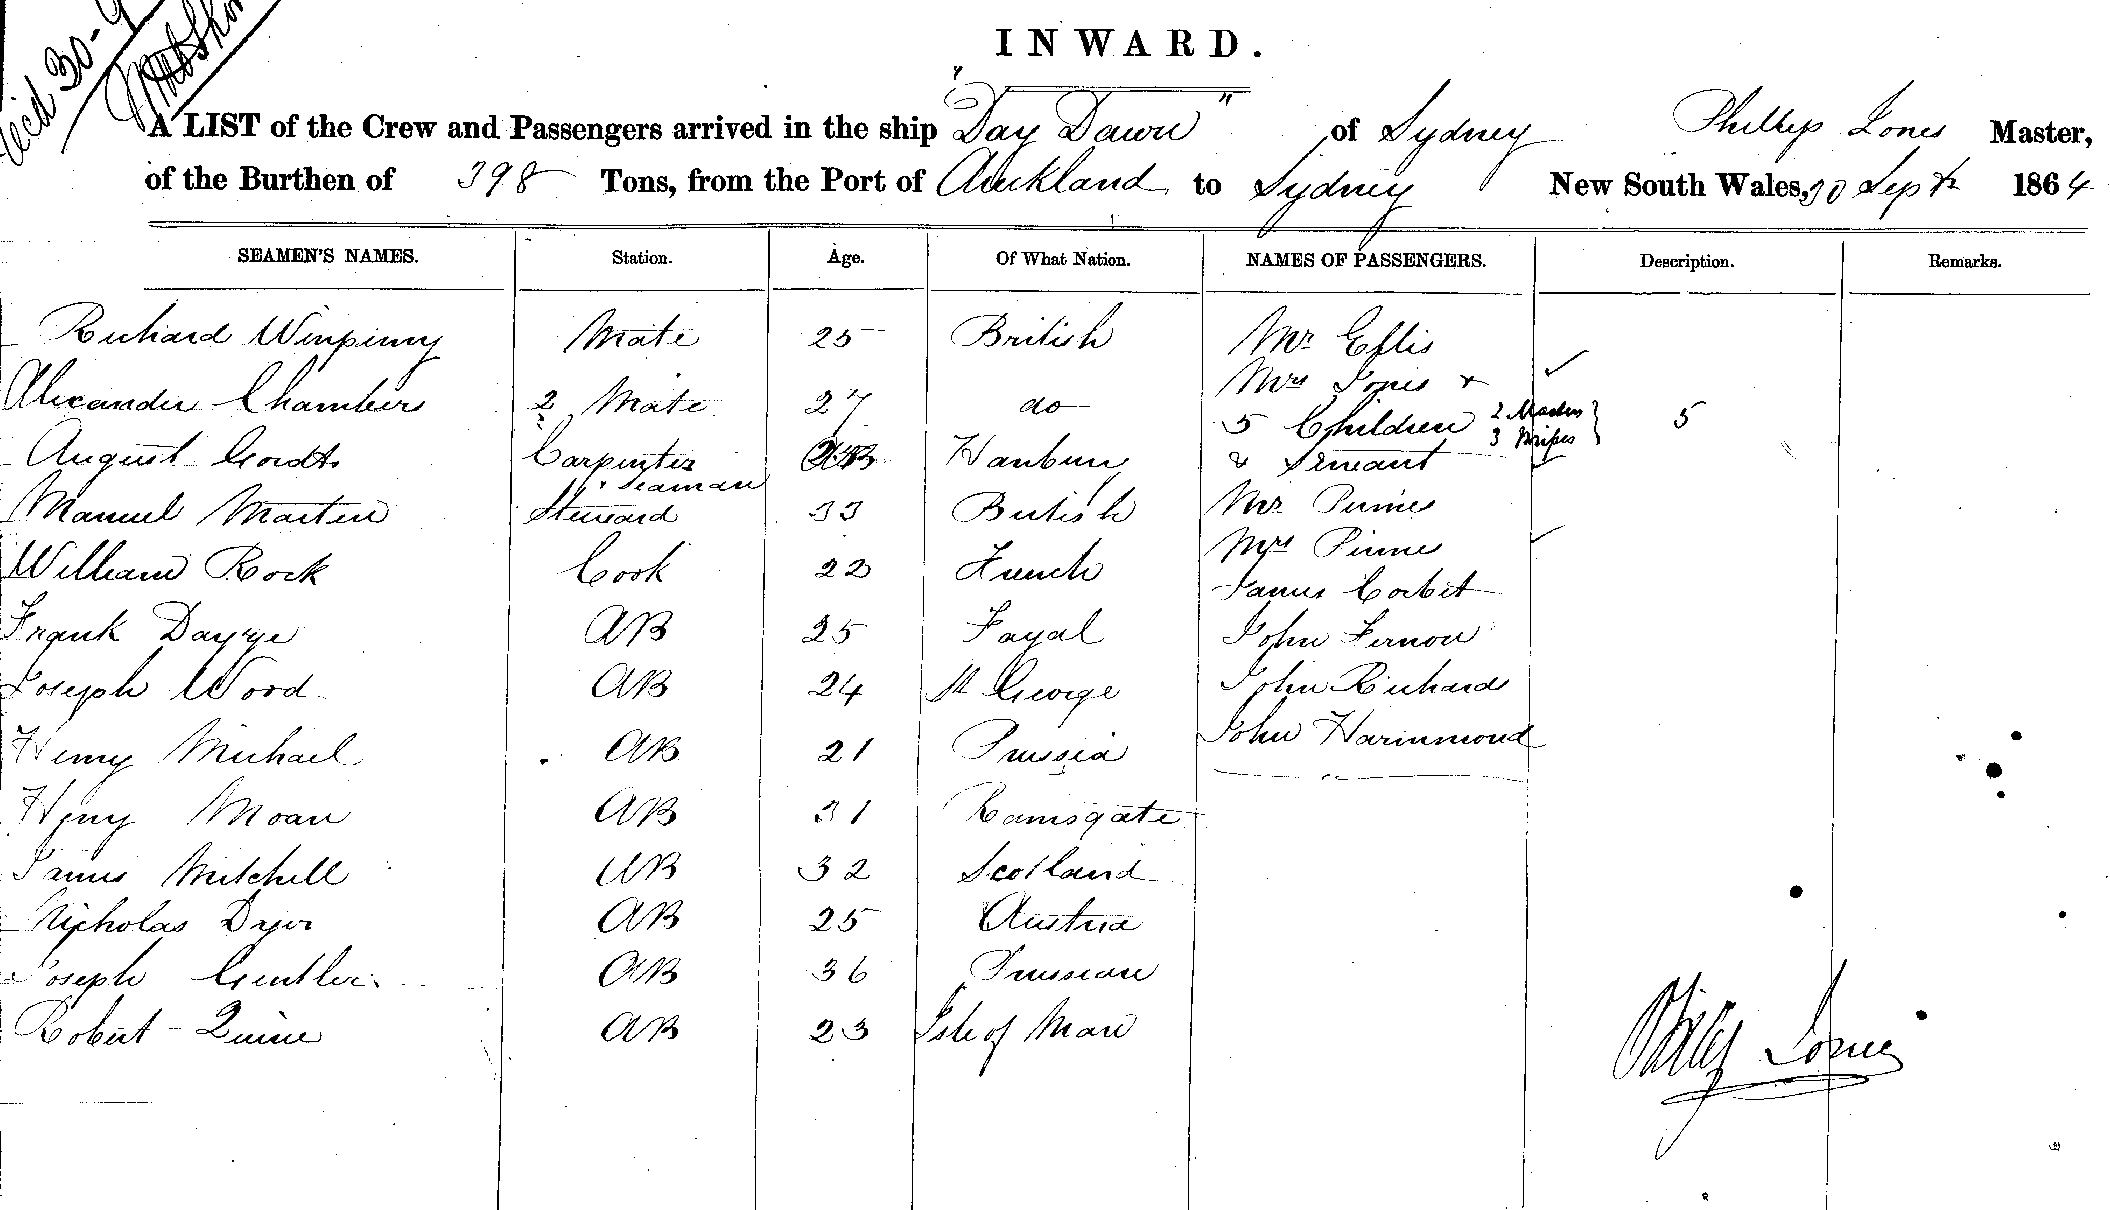 INWARD.
A LIST of the Crew and Passengers arrived in the ship "Day Dawn" of Sydney Phillip Jones Master,
of the Burthen of 398 Tons, from the Port of Auckland to Sydney New South Wales, 30 Sept 1864
SEAMEN'S NAMES. Station. Age. Of What Nation. NAMES OF PASSENGERS. Description. Remarks.
Richard Winpinny Mate 25 British Mr Ellis
Mrs Jones +
Alexander Chambers 2 Mate 27 do 5 Children 2 Masters 3 Misses } 5
August Gordts Carpenter & Seaman Hanburg & Servant
Manuel Marten Steward 33 British Mr Pirine
Mrs Pirine
William Rock Cook 22 French James Corbit
Frank AB 25 Fayal John Fernon
Joseph Wood AB 24 St George John Richards
Henry Michael AB 21 Prussia John Hammond
Heny Moan AB 31 Ramsgate
James Mitchell AB 32 Scotland
Nicholas AB 25 Austria
Joseph Gentler AB 36 Prussian
Robert Quine AB 23 Isle of Man
Jones